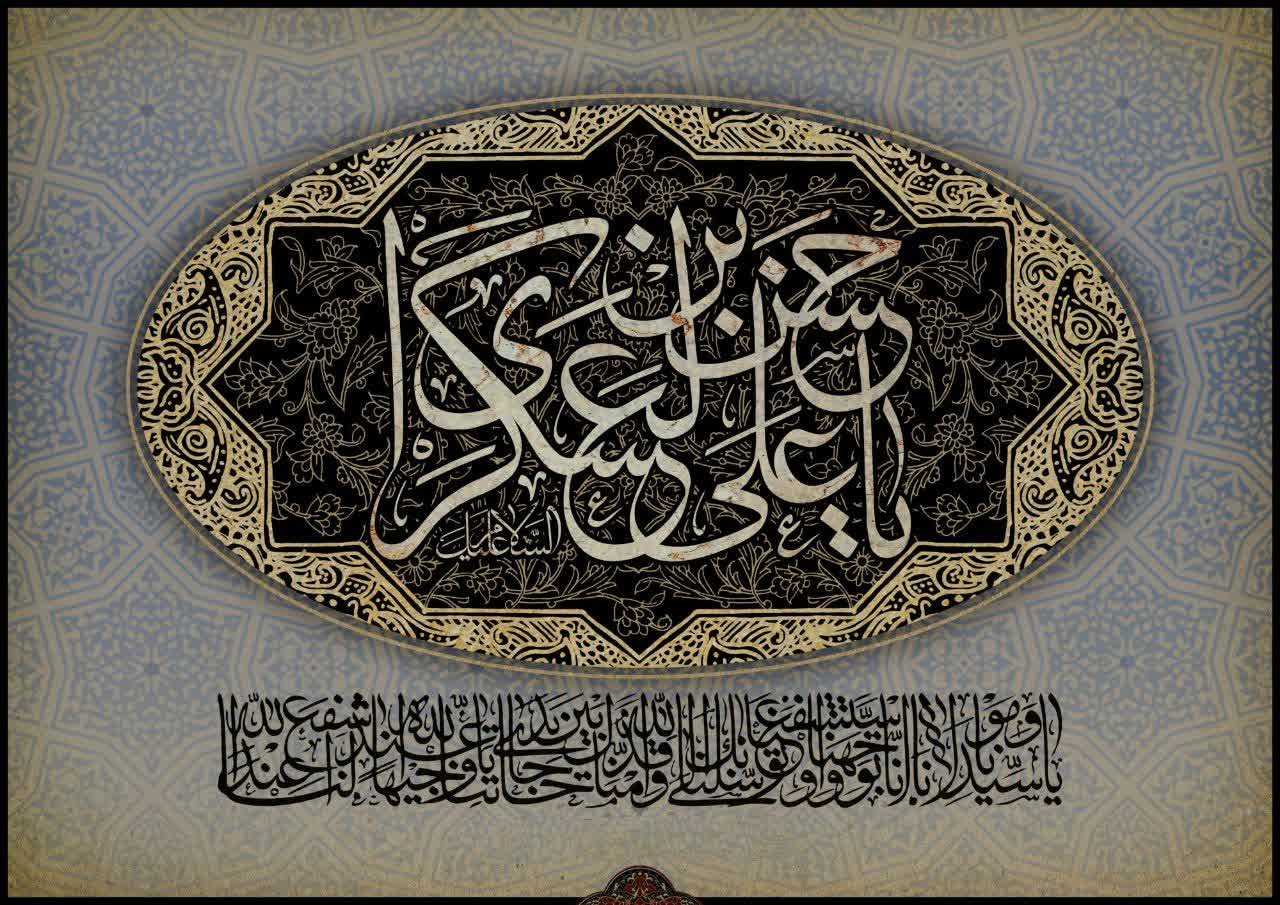 یا حسن بن علی العسکری
السلام علیک
یا سیدنا و مولانا انا توجهنا و استشفعنا و توسلنا بک الی الله و قدمناک بین یدی حاجاتنا یا وجیها عند الله اشفع لنا عند الله